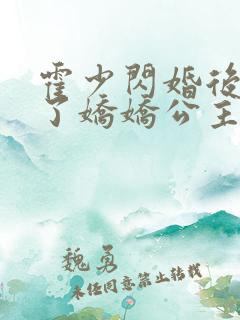 霍少閃婚後
了嬌嬌公主
魏勇
未任同意禁止轉載